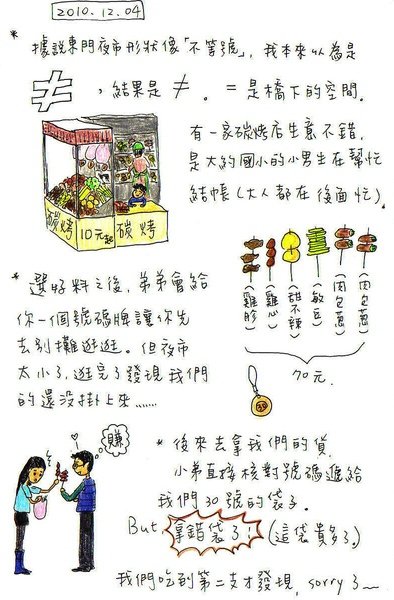 2010.12.04
* 據說東門夜市形狀像「不等號」，我本來以為是
≠，結果是≠。＝是橋下的空間.
有一家碳烤店生意不錯.
是大約國小的小男生在幫忙
結帳(大人都在後面忙).
碳烤 10元起 碳烤
(雞胗)
(雞心)
(甜不辣)
(敏豆)
(肉包蔥)
(肉包蔥)
70元.
30
* 選好料之後，弟弟會給
你一個號碼牌讓你先
去別攤逛逛。但夜市
太小了，逛完了發現我們
的還沒掛上來……
賺
* 後來去拿我們的貨，
小弟直接核對號碼遞給
我們30號的袋子.
But 拿錯袋了！(這袋貴多了)
我們吃到第二支才發現，sorry了~